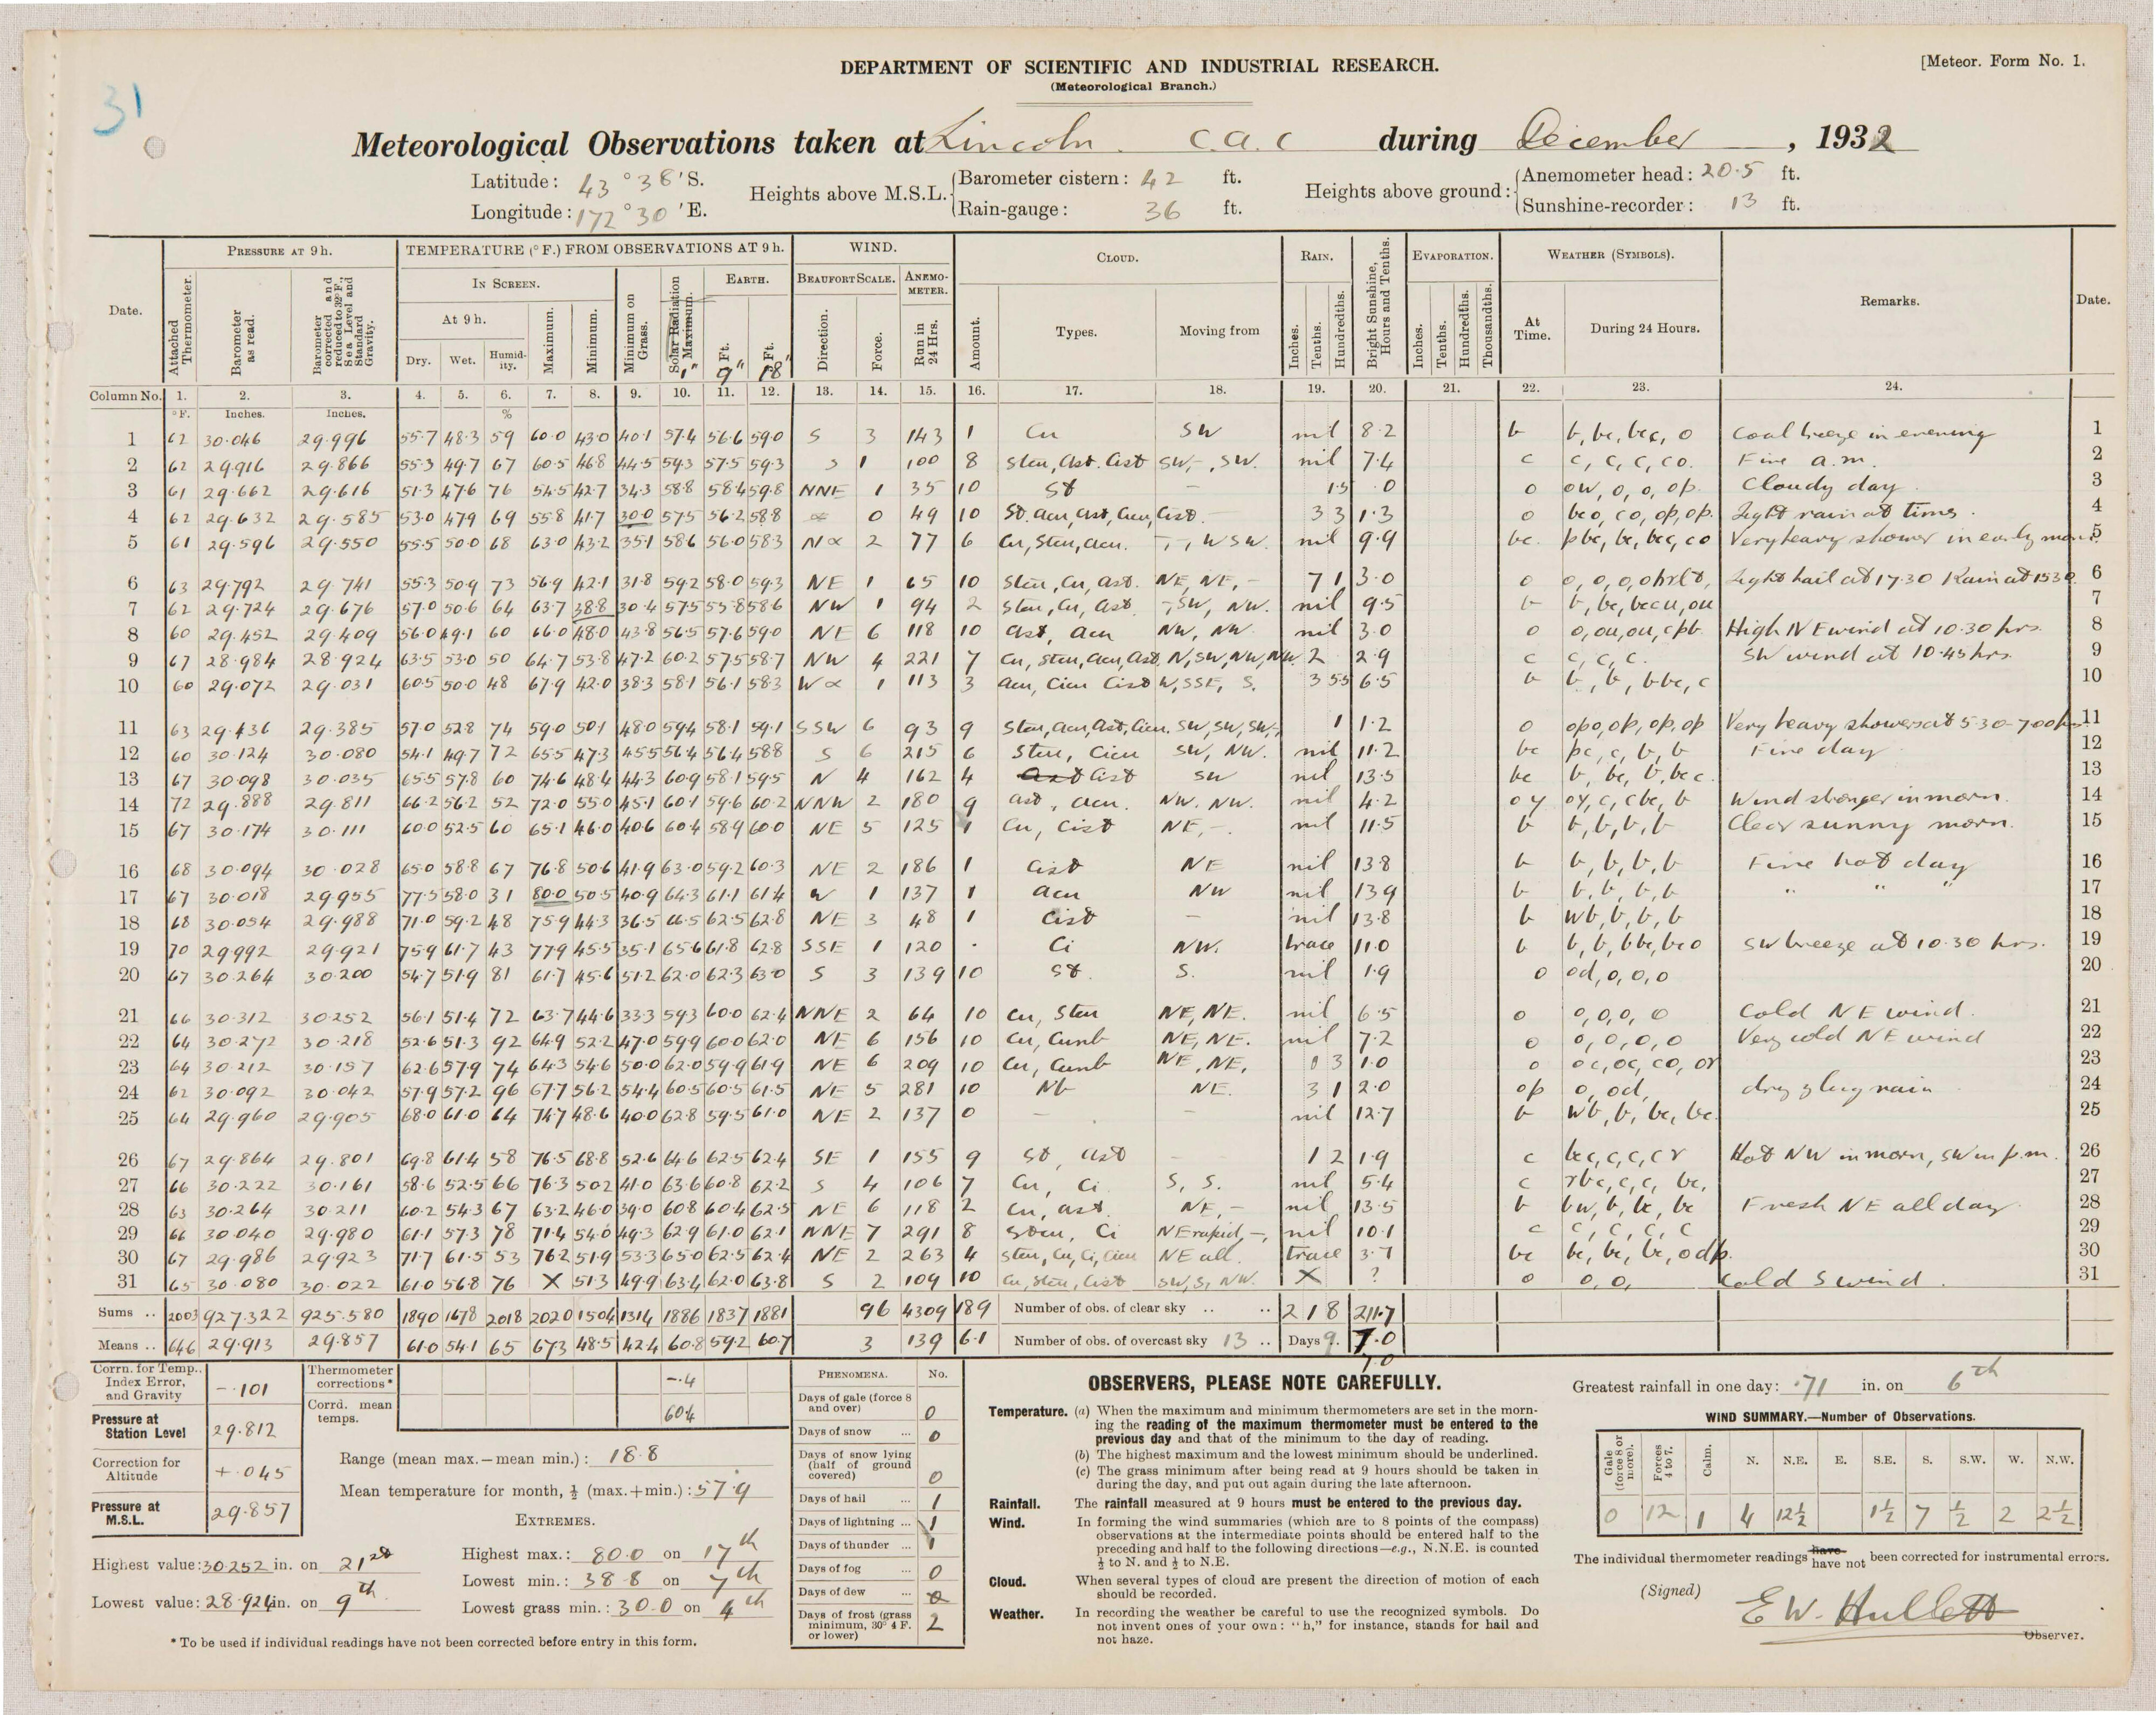 31
DEPARTMENT OF SCIENTIFIC AND INDUSTRIAL RESEARCH.
[Meteor. Form No. 1.
(Meteorological Branch.)
Meteorological Observations taken at Lincoln. C.A.C during December, 1932
Latitude: 43° 38' S. Heights above M.S.L. Barometer cistern: 42 ft. Heights above ground: Anemometer head: 20.5 ft.
Longitude: 172° 30' E. Rain-gauge: 36 ft. Sunshine-recorder: 13 ft.
Date. PRESSURE AT 9 h. TEMPERATURE (° F.) FROM OBSERVATIONS AT 9 h. WIND. CLOUD. RAIN. Bright Sunshine, Hours and Tenths. EVAPORATION. WEATHER (SYMBOLS). Remarks. Date.
Attached Thermometer. Barometer as read. Barometer corrected and reduced to 32° F., Sea Level and Standard Gravity. IN SCREEN. Minimum on Grass. Solar Radiation Maximum. 1" EARTH. BEAUFORT SCALE. ANEMOMETER.
At 9 h. Maximum. Minimum. Ft. 9" Ft. 18" Direction. Force. Run in 24 Hrs. Amount. Types. Moving from Inches. Tenths. Hundredths. Inches. Tenths. Hundredths. Thousandths. At Time. During 24 Hours.
Dry. Wet. Humidity.
Column No. 1. 2. 3. 4. 5. 6. 7. 8. 9. 10. 11. 12. 13. 14. 15. 16. 17. 18. 19. 20. 21. 22. 23. 24.
°F. Inches. Inches. %
1 62 30.046 29.996 55.7 48.3 59 60.0 43.0 40.1 57.4 56.6 59.0 S 3 143 1 Cu SW nil 8.2 b b, bc, bcc, o Cool breeze in evening 1
2 62 29.916 29.866 55.3 49.7 67 60.5 46.8 44.5 59.3 57.5 59.3 S 1 100 8 Stcu, Ast. Cist SW, -, SW. nil 7.4 c c, c, c, co. Fine a.m. 2
3 61 29.662 29.616 51.3 47.6 76 54.5 42.7 34.3 58.8 58.4 59.8 NNE 1 35 10 St - 15 .0 o ow, o, o, op. Cloudy day. 3
4 62 29.632 29.585 53.0 47.9 69 55.8 41.7 30.0 57.5 56.2 58.8 0 49 10 St. Acu, Ast, Cicu, Cist. - 33 1.3 o bco, co, op, op. Light rain at times. 4
5 61 29.596 29.550 55.5 50.0 68 63.0 43.2 35.1 58.6 56.0 58.3 2 77 6 Cu, Stcu, Acu. -, -, WSW. nil 9.9 bc. pbc, bc, bcc, co Very heavy shower in early morn. 5
6 63 29.792 29.741 55.3 50.9 73 56.9 42.1 31.8 59.2 58.0 59.3 NE 1 65 10 Stcu, Cu, Ast. NE, NE, - 71 3.0 o o, o, o, ohrlt, Light hail at 17.30 Rain at 1530. 6
7 62 29.724 29.676 57.0 50.6 64 63.7 38.8 30.4 57.5 55.8 58.6 NW 1 94 2 Stcu, Cu, Ast. -, SW, NW. nil 9.5 b b, bc, bccu, ou 7
8 60 29.452 29.409 56.0 49.1 60 66.0 48.0 43.8 56.5 57.6 59.0 NE 6 118 10 Ast, Acu NW, NW nil 3.0 o o, ou, ou, cpb High NE wind at 10.30 hrs. 8
9 67 28.984 28.924 63.5 53.0 50 64.7 53.8 47.2 60.2 57.5 58.7 NW 4 221 7 Cu, Stcu, Acu, Ast. N, SW, NW, NW. 2 2.9 c c, c, c. SW wind at 10.45 hrs. 9
10 60 29.072 29.031 60.5 50.0 48 67.9 42.0 38.3 58.1 56.1 58.3 1 113 3 Acu, Cicu Cist W, SSE, S. 3 55 6.5 b b, b, bbc, c 10
11 63 29.436 29.385 57.0 52.8 74 59.0 50.1 48.0 59.4 58.1 59.1 SSW 6 93 9 Stcu, Acu, Ast, Cicu. SW, SW, SW, - 1 1.2 o opo, op, op, op Very heavy showers at 5.30-7.00 hrs 11
12 60 30.124 30.080 54.1 49.7 72 65.5 47.3 45.5 56.4 56.4 58.8 S 6 215 6 Stcu, Cicu SW, NW. nil 11.2 bc pc, c, b, b Fine day 12
13 67 30.098 30.035 65.5 57.8 60 74.6 48.4 44.3 60.9 58.1 59.5 N 4 162 4 Ast Cist SW nil 13.5 bc b, bc, b, bcc. 13
14 72 29.888 29.811 66.2 56.2 52 72.0 55.0 45.1 60.1 59.6 60.2 NNW 2 180 9 Ast, Acu. NW. NW. nil 4.2 oy oy, c, cbc, b Wind stronger in morn. 14
15 67 30.174 30.111 60.0 52.5 60 65.1 46.0 40.6 60.4 58.9 60.0 NE 5 125 1 Cu, Cist NE, -. nil 11.5 b b, b, b, b Clear sunny morn. 15
16 68 30.094 30.028 65.0 58.8 67 76.8 50.6 41.9 63.0 59.2 60.3 NE 2 186 1 Cist NE nil 13.8 b b, b, b, b Fine hot day 16
17 67 30.018 29.955 77.5 58.0 31 80.0 50.5 40.9 64.3 61.1 61.4 W 1 137 1 Acu NW nil 13.9 b b, b, b, b " " " 17
18 68 30.054 29.988 71.0 59.2 48 75.9 44.3 36.5 66.5 62.5 62.8 NE 3 48 1 Cist - nil 13.8 b wb, b, b, b 18
19 70 29.992 29.921 75.9 61.7 43 77.9 45.5 35.1 65.6 61.8 62.8 SSE 1 120 . Ci NW. trace 11.0 b b, b, bbc, bco SW breeze at 10.30 hrs. 19
20 67 30.264 30.200 54.7 51.9 81 61.7 45.6 51.2 62.0 62.3 63.0 S 3 139 10 St. S. nil 1.9 o od, o, o, o 20
21 66 30.312 30.252 56.1 51.4 72 63.7 44.6 33.3 59.3 60.0 62.4 NNE 2 64 10 Cu, Stcu NE, NE. nil 6.5 o o, o, o, o Cold NE wind. 21
22 64 30.272 30.218 52.6 51.3 92 64.9 52.2 47.0 59.9 60.0 62.0 NE 6 156 10 Cu, Cunb NE, NE. nil 7.2 o o, o, o, o Very cold NE wind 22
23 64 30.212 30.157 62.6 57.9 74 64.3 54.6 50.0 62.0 59.9 61.9 NE 6 209 10 Cu, Cunb NE, NE, 03 1.0 o oc, oc, co, or 23
24 62 30.092 30.042 57.9 57.2 96 67.7 56.2 54.4 60.5 60.5 61.5 NE 5 281 10 Nb NE. 31 2.0 op o, od, rain 24
25 64 29.960 29.905 68.0 61.0 64 74.7 48.6 40.0 62.8 59.5 61.0 NE 2 137 0 - - nil 12.7 b wb, b, bc, bc. 25
26 67 29.864 29.801 69.8 61.4 58 76.5 68.8 52.6 64.6 62.5 62.4 SE 1 155 9 St, Ast - 12 1.9 c bcc, c, c, cr Hot NW in morn, SW in p.m. 26
27 66 30.222 30.161 58.6 52.5 66 76.3 50.2 41.0 63.6 60.8 62.2 S 4 106 7 Cu, Ci S, S. nil 5.4 c rbc, c, c, bc, 27
28 63 30.264 30.211 60.2 54.3 67 63.2 46.0 39.0 60.8 60.4 62.5 NE 6 118 2 Cu, Ast. NE, - nil 13.5 b bw, b, bc, bc Fresh NE all day. 28
29 66 30.040 29.980 61.1 57.3 78 71.4 54.0 49.3 62.9 61.0 62.1 NNE 7 291 8 Stcu, Ci NE rapid, -, nil 10.1 c c, c, c, c 29
30 67 29.986 29.923 71.7 61.5 53 76.2 51.9 53.3 65.0 62.5 62.4 NE 2 263 4 Stcu, Cu, Ci, Cicu NE all. trace 3.7 bc bc, bc, bc, odp. 30
31 65 30.080 30.022 61.0 56.8 76 X 51.3 49.9 63.4 62.0 63.8 S 2 109 10 Cu, Stcu, Cist SW, S, NW. X ? o o, o, Cold S wind. 31
Sums .. 2003 927.322 925.580 1890 1678 2018 2020 1504 1314 1886 1837 1881 96 4309 189 Number of obs. of clear sky .. .. 218 211.7
Means .. 64.6 29.913 29.857 61.0 54.1 65 67.3 48.5 42.4 60.8 59.2 60.7 3 139 6.1 Number of obs. of overcast sky 13 .. Days 9. 7.0
7.0
Corrn. for Temp., Index Error, and Gravity -.101
Thermometer corrections* -.4
Pressure at Station Level 29.812
Corrd. mean temps. 60.4
Correction for Altitude +.045
Pressure at M.S.L. 29.857
Range (mean max.—mean min.): 18.8
Mean temperature for month, ½ (max.+min.): 57.9
EXTREMES.
Highest value: 30.252 in. on 21st
Lowest value: 28.924 in. on 9th
Highest max.: 80.0 on 17th
Lowest min.: 38.8 on 7th
Lowest grass min.: 30.0 on 4th
* To be used if individual readings have not been corrected before entry in this form.
PHENOMENA. No.
Days of gale (force 8 and over) 0
Days of snow ... 0
Days of snow lying (half of ground covered) 0
Days of hail ... 1
Days of lightning ... 1
Days of thunder ... 1
Days of fog ... 0
Days of dew ... 0
Days of frost (grass minimum, 30° 4 F. or lower) 2
OBSERVERS, PLEASE NOTE CAREFULLY.
Temperature. (a) When the maximum and minimum thermometers are set in the morn-
ing the reading of the maximum thermometer must be entered to the
previous day and that of the minimum to the day of reading.
(b) The highest maximum and the lowest minimum should be underlined.
(c) The grass minimum after being read at 9 hours should be taken in
during the day, and put out again during the late afternoon.
Rainfall. The rainfall measured at 9 hours must be entered to the previous day.
Wind. In forming the wind summaries (which are to 8 points of the compass)
observations at the intermediate points should be entered half to the
preceding and half to the following directions—e.g., N.N.E. is counted
½ to N. and ½ to N.E.
Cloud. When several types of cloud are present the direction of motion of each
should be recorded.
Weather. In recording the weather be careful to use the recognized symbols. Do
not invent ones of your own: "h," for instance, stands for hail and
not haze.
Greatest rainfall in one day: .71 in. on 6th
WIND SUMMARY.—Number of Observations.
Gale (force 8 or more). Forces 4 to 7. Calm. N. N.E. E. S.E. S. S.W. W. N.W.
0 12 1 4 12½ 1½ 7 ½ 2 2½
The individual thermometer readings have have not been corrected for instrumental errors.
(Signed) E W. Hullett
Observer.